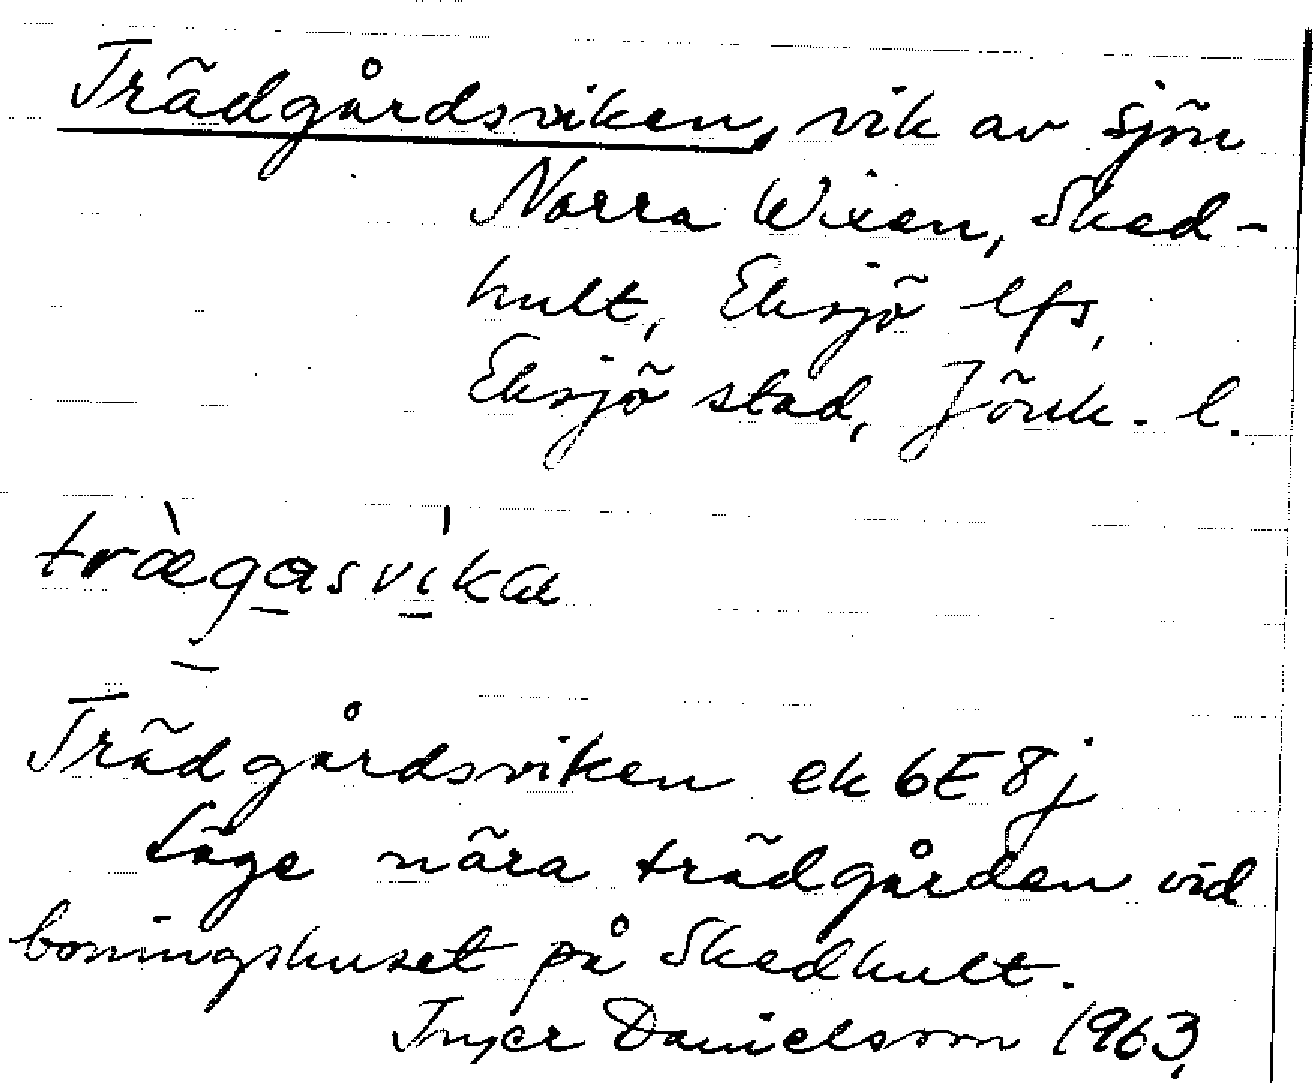 Trädgårdsviken, vik av sjön
Norra Wixen, Sked-
hult, Eksjö lfs,
Eksjö stad, Jönk. l.
træ̀gasvíka
Trädgårdsviken ek 6E8j
Läge nära trädgården vid
boningshuset på Skedhult.
Inger Danielsson 1963